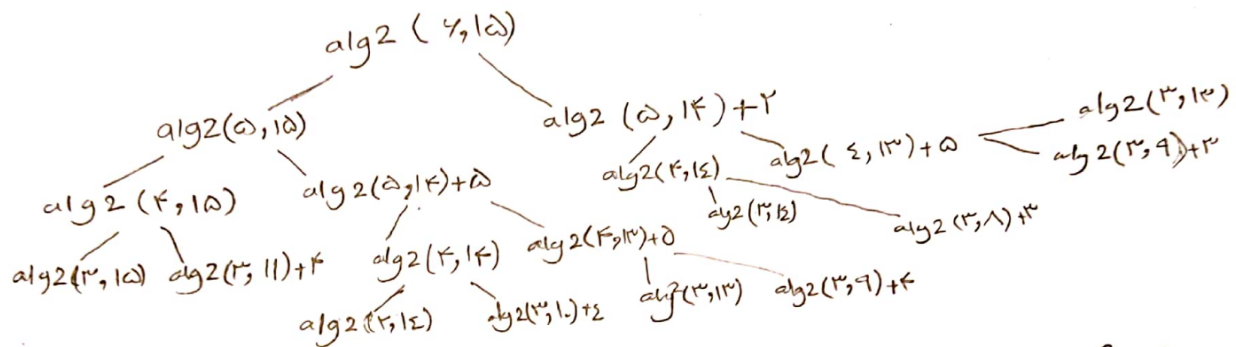 alg2 ( ۶,۱۵)
alg2(۵,۱۵)
alg2 (۵,۱۴)+۲
alg2(۳,۱۳)
alg2(۳,۹)+۳
alg2( ٤,۱۳)+۵
alg2(۴,۱٤)
alg2 (۴,۱۵)
alg2(۵,۱۴)+۵
alg2(۳,۱٤)
alg2(۳,۸)+۳
alg2(۳,۱۵)
alg2(۳,۱۱)+۴
alg2(۴,۱۴)
alg2(۴,۱۳)+۵
alg2(۳,۱٤)
alg2(۳,۱۰)+٤
alg2(۳,۱۳)
alg2(۳,۹)+۴